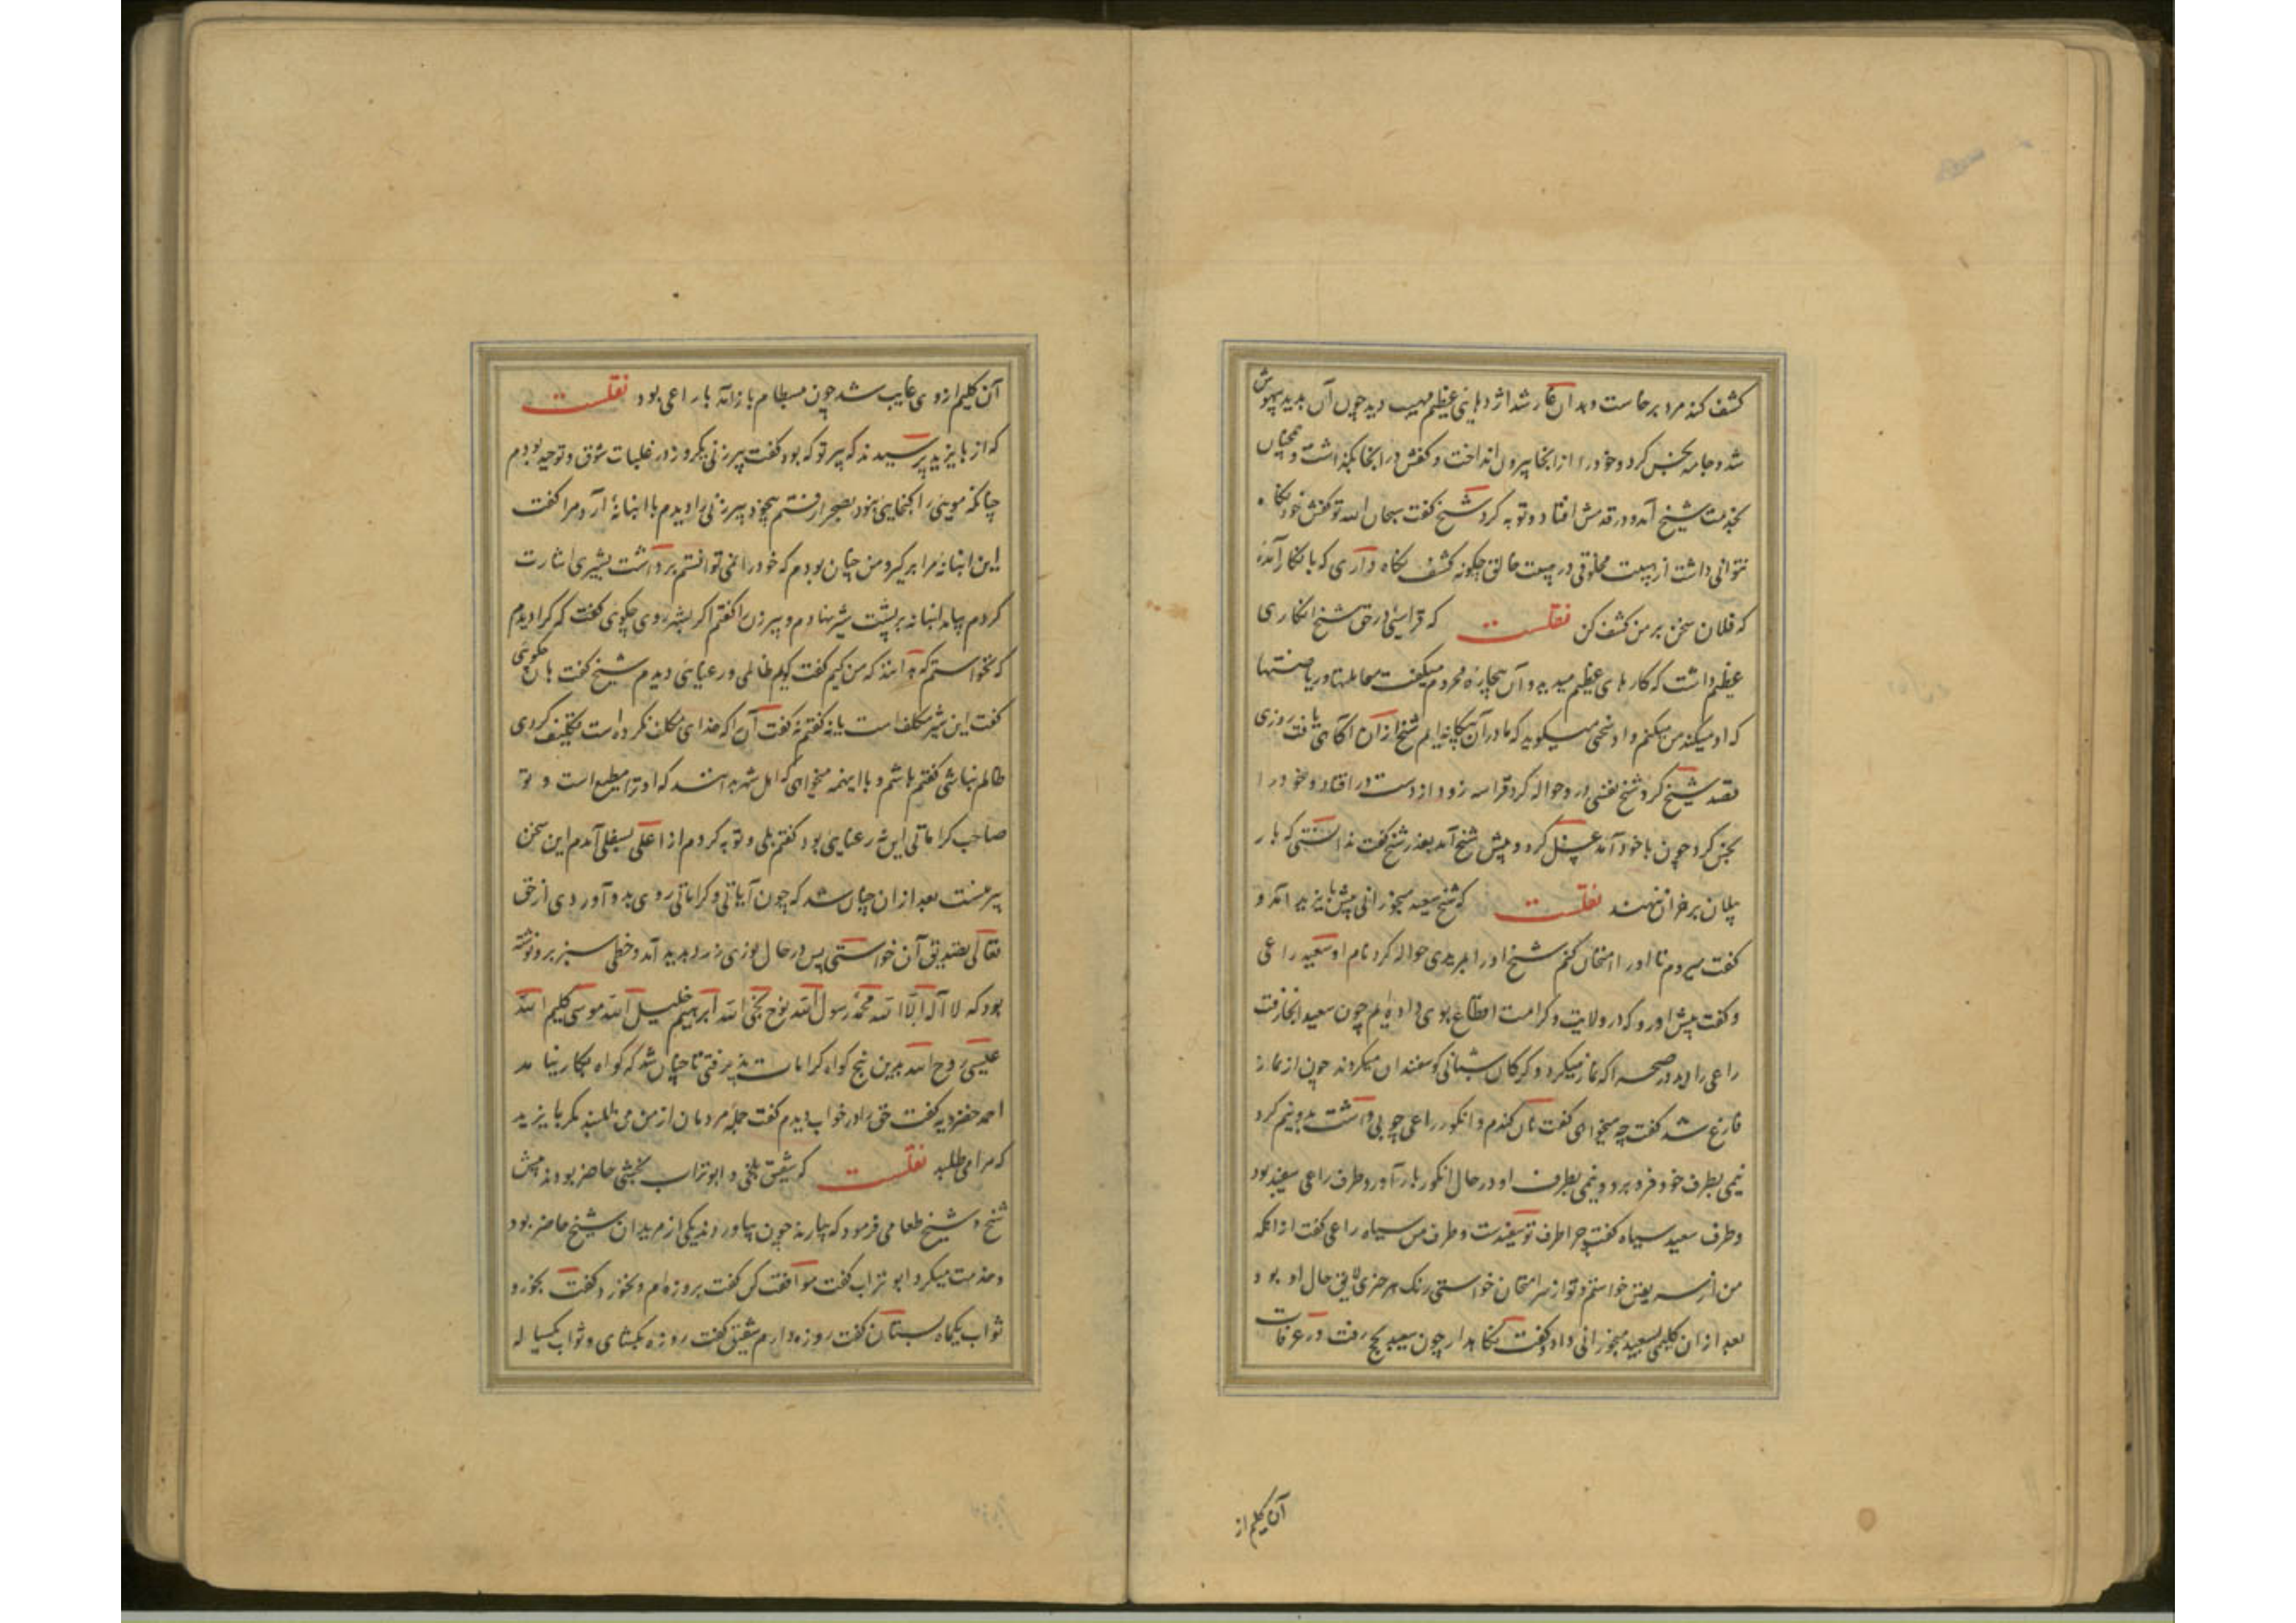 کشف کند مرد برخاست و بدان غار شد اژدهائی عظیم مهیب دید چون آن بدید بیهوش
شد و جامه نجس کرد و خود را از آنجا بیرون انداخت و کفش در آنجا بگذاشت و همچنان
بخدمت شیخ آمد و در قدمش افتاد و توبه کرد شیخ گفت سبحان الله تو کفش خود نگاه
نتوانی داشت از هیبت مخلوقی در هیبت خالق چگونه کشف نگاه داری که بانکار آمدهٔ
که فلان سخن بر من کشف کن نقلست که قرایئی در حق شیخ انکاری
عظیم داشت که کارهای عظیم میدید و آن بیچاره محروم میگفت معاملها و ریاضتها
که او میکند من میکنم و او سخنی میگوید که ما در آن بیگانه‌ایم شیخ از آن آگاهی یافت روزی
قصد شیخ کرد شیخ نفسی در وی حواله کرد قرا سه روز از دست در افتاد و خود را
نجس کرد چون با خود آمد غسل کرد و پیش شیخ آمد بعذر شیخ گفت ندانستی که بار
پیلان بر خران ننهند نقلست که شیخ سعید میخورانی پیش بایزید آمد و
گفت میروم تا او را امتحان کنم شیخ او را بمریدی حواله کرد نام او سعید راعی
و گفت پیش او رو که در ولایت و کرامت اقطاع بوی داده‌ایم چون سعید آنجا رفت
راعی را دید در صحرا که نماز میکرد و گرگان شبانی گوسفندان میکردند چون از نماز
فارغ شد گفت چه میخواهی گفت نان گندم و انگور راعی چوبی داشت بدو نیم کرد
نیمی بطرف خود فرو برد و نیمی بطرف او در حال انگور بار آورد و طرف راعی سفید بود
و طرف سعید سیاه گفت چرا طرف تو سفیدست و طرف من سیاه راعی گفت از آنکه
من از سر یقین خواستم و تو از سر امتحان خواستی رنک هر چیزی لایق حال او بود
بعد از ان گلیمی بسعید میخورانی داد و گفت نگاهدار چون سعید بحج رفت در عرفات
آن گلیم از
آن گلیم از وی غایب شد چون ببسطام باز آمد با راعی بود نقلست
که از بایزید پرسیدند که پیر تو که بود گفت پیرزنی یکروز در غلبات شوق و توحید بودم
چنانکه مویی را گنجایی نبود بصحرا رفتم بیخود پیرزنی را دیدم با انبانهٔ آرد مرا گفت
این انبانه مرا برگیر و من چنان بودم که خود را نمی‌توانستم برداشت بشیری اشارت
کردم بیامد انبانه بر پشت شیر نهادم و پیرزن را گفتم اگر بشهر روی چگوئی گفت که کرا دیدم
که نخواستم که بدانند که من کیم گفت گویم ظالمی و رعنائی دیدم شیخ گفت هان چگوئی
گفت این شیر مکلف است یا نه گفتم نه گفت آن را که خدای مکلف نکرده است تکلیف کردی
ظالم نباشی گفتم باشم و با اینهمه میخواهی که اهل شهر بدانند که او ترا مطیع است و تو
صاحب کراماتی این نه رعنایی بود گفتم بلی و توبه کردم از اعلی بسفلی آمدم این سخن
پیر منست بعد از ان چنان شد که چون آیاتی و کراماتی روی بدو آوردی از حق
تعالی تصدیق آن خواستی پس در حال نوری زرد پدید آمد و خطی سبز برو نوشته
بود که لا اله الا الله محمد رسول الله نوح نجی الله ابرهیم خلیل الله موسی کلیم الله
عیسی روح الله بدین پنج گواه کرامات پذیرفتی تا چنان شد که گواه بکار نیامد
احمد خضرویه گفت حق را در خواب دیدم گفت جمله مردمان از من می‌طلبند مگر بایزید
که مرا می‌طلبد نقلست که شقیق بلخی و ابو تراب نخشبی حاضر بودند پیش
شیخ و شیخ طعامی فرمود که بیارند چون بیاوردند یکی از مریدان شیخ حاضر بود
و خدمت میکرد ابو تراب گفت موافقت کن گفت بروزه‌ام و نخورد گفت بخور و
ثواب یکماه بستان گفت روزه دارم شقیق گفت روزه بگشای و ثواب یکساله